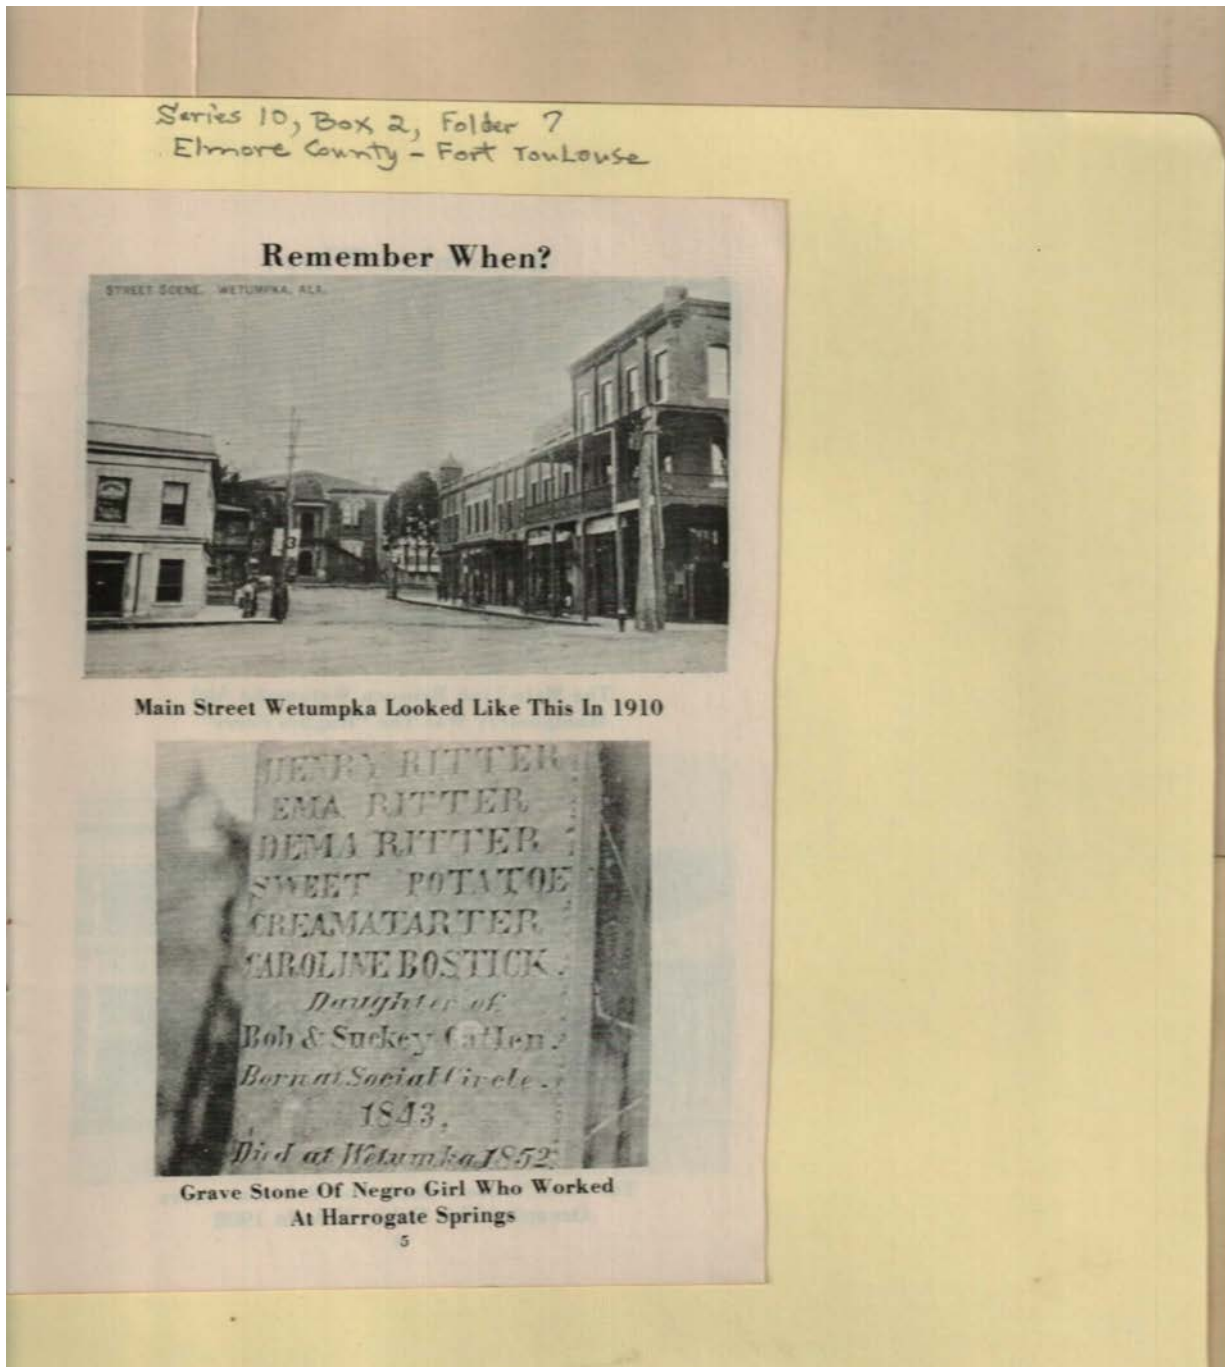 Series 10, Box 2, Folder 7
Elmore County - Fort TouLouse
Remember When?
STREET SCENE. WETUMPKA, ALA.
Main Street Wetumpka Looked Like This In 1910
HENRY RITTER
EMA RITTER
DEMA RITTER
SWEET POTATOE
CREAMATARTER
CAROLINE BOSTICK.
Daughter of
Bob & Suckey Catlen.
Born at Social Circle.
1843,
Died at Wetumka 1852.
Grave Stone Of Negro Girl Who Worked
At Harrogate Springs
5